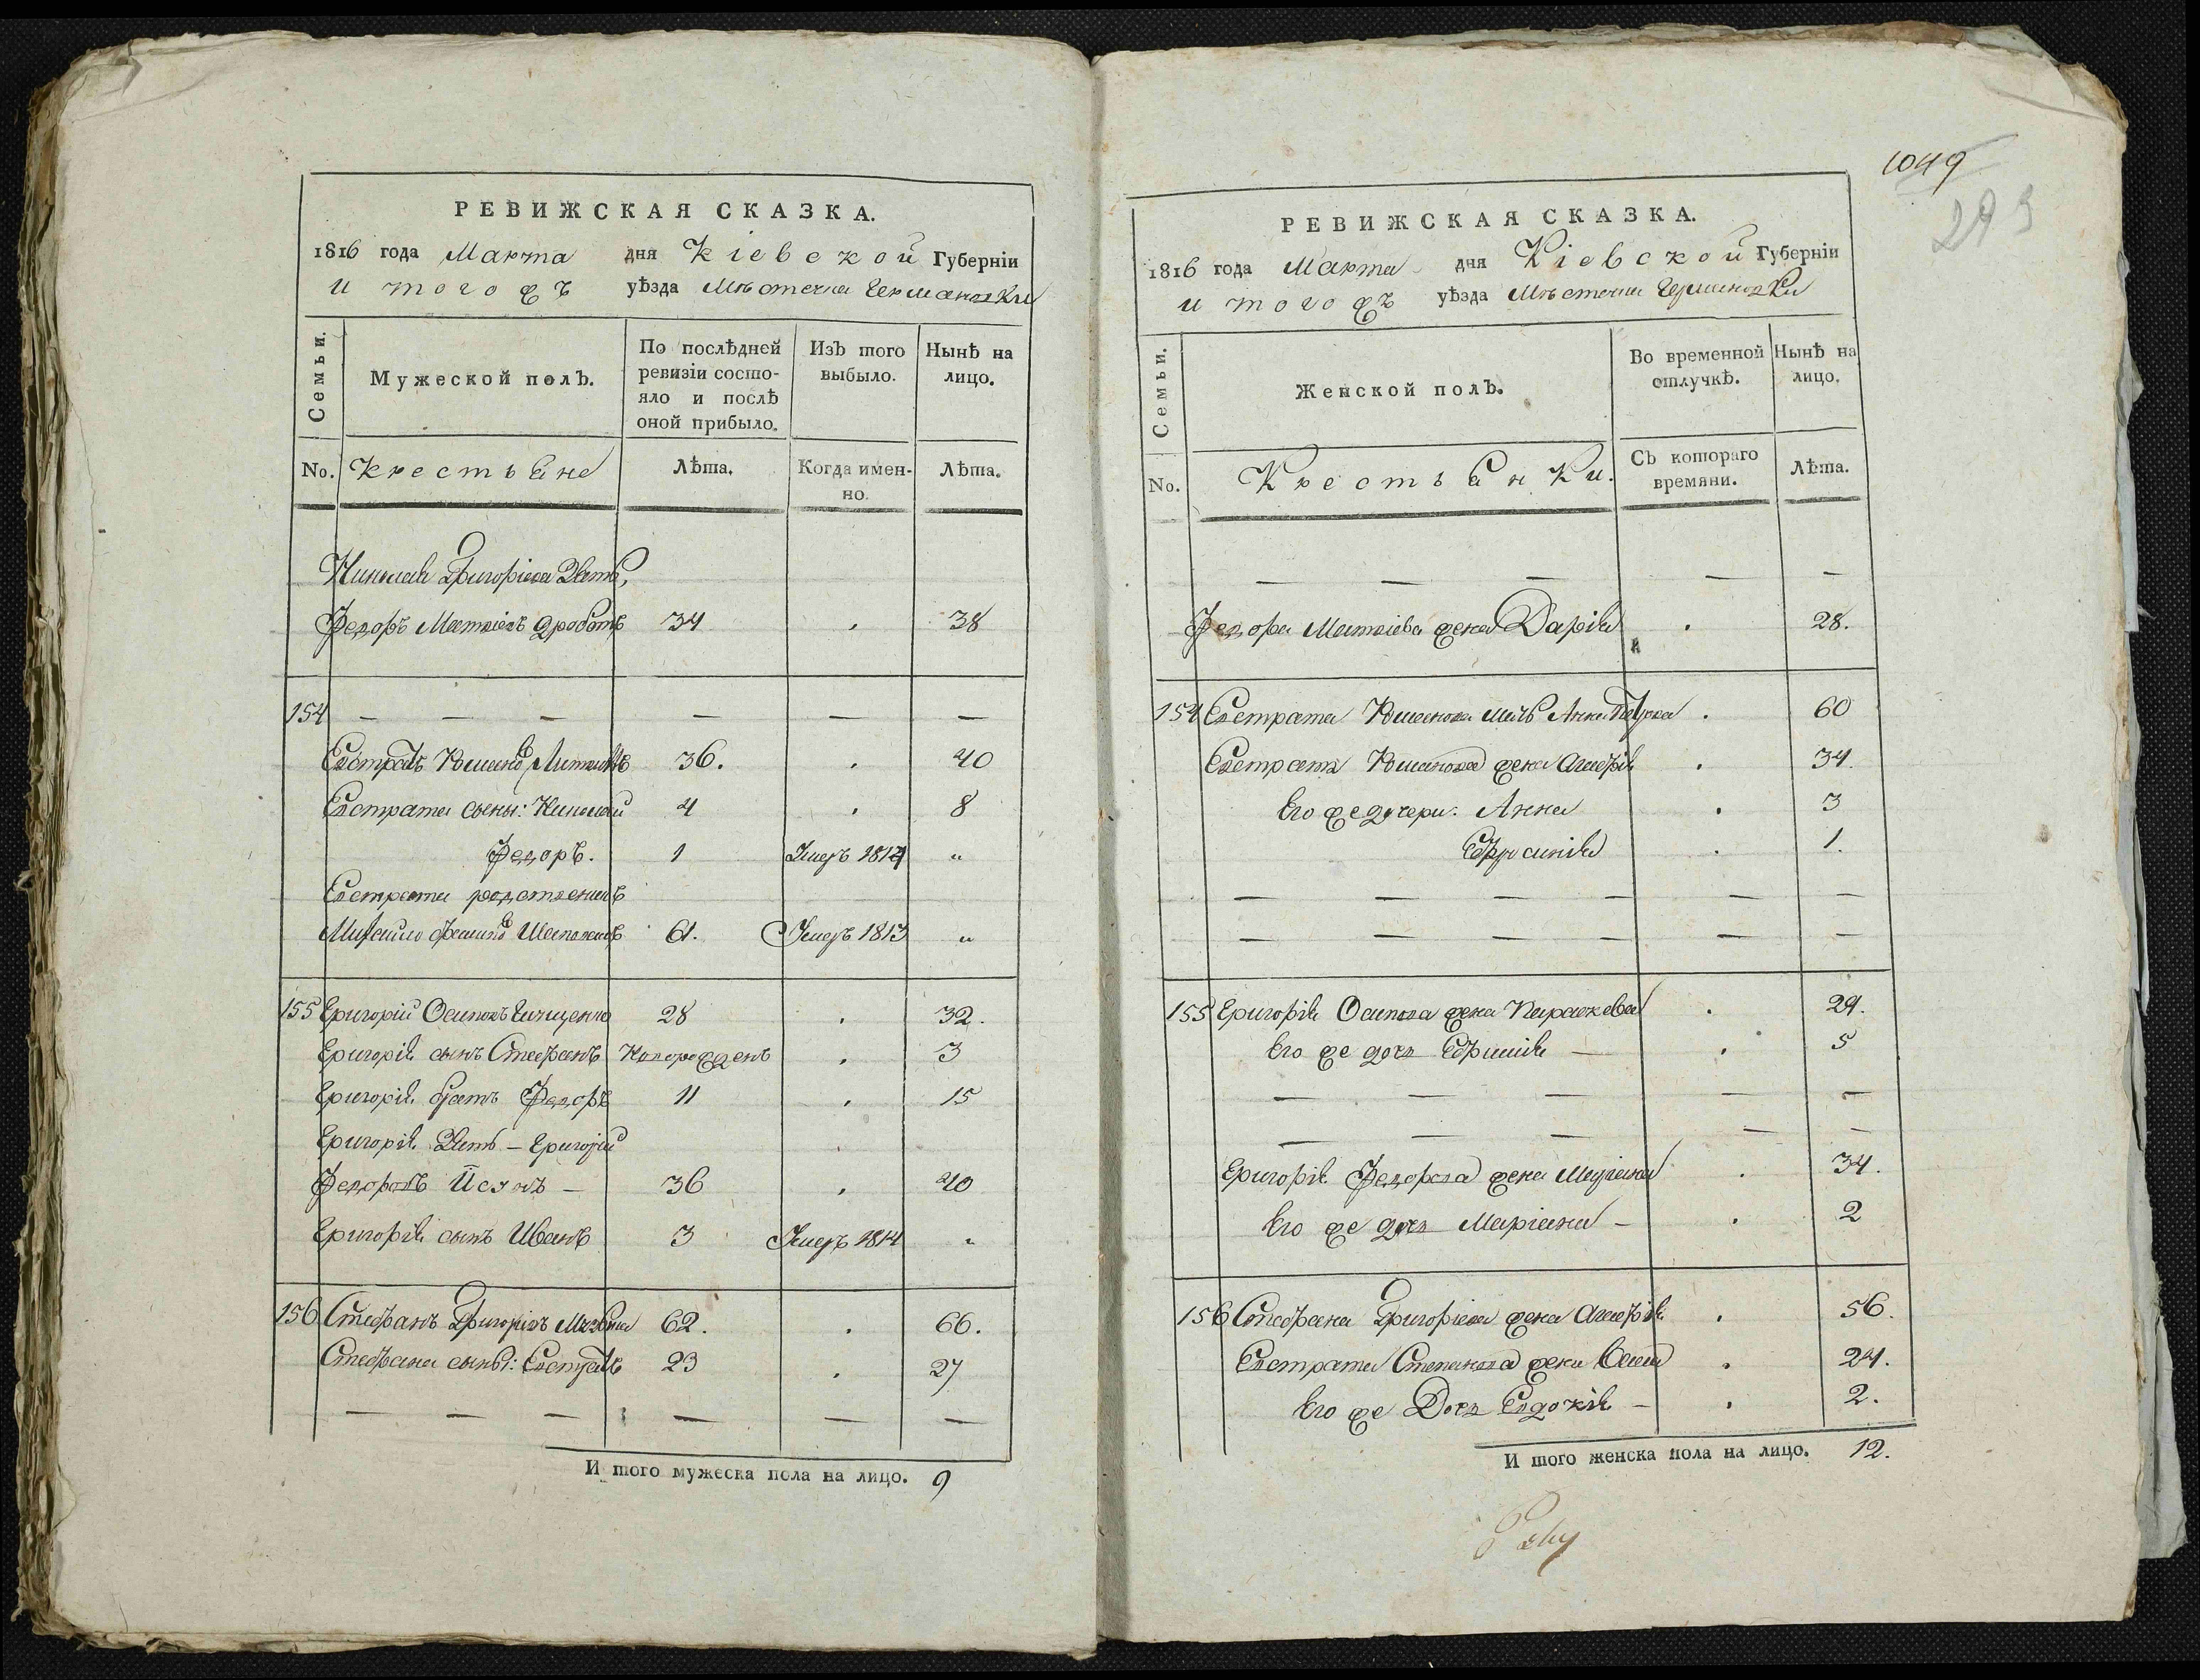 РЕВИЖСКАЯ СКАЗКА.
1816 года Марта дня Кіевской Губерніи
и тогожъ уѣзда Мѣстечка Германовки
Семьи.
Мужеской полъ.
По послѣдней ревизіи состояло и послѣ оной прибыло.
Изъ того выбыло.
Нынѣ на лицо.
No. Крестьяне
Лѣта.
Когда именно.
Лѣта.
Николая Григоріева Зять,
Федоръ Матвіевъ 34 38
154 — — — — — —
Евстратъ 36. 40
Евстрата сыны: Николай 4 8
Федоръ. 1 Умеръ 1814 "
Евстрата родственникъ
Михайло 61. Умеръ 1813 "
155 Григорій Осиповъ 28 32.
Григорія сынъ Стефанъ Новорожденъ 3
Григорія братъ Федоръ 11 15
Григорія Зять — Григорій
Федоровъ — 36 40
Григорія сынъ Иванъ 3 Умеръ 1814 "
156 Стефанъ Григоріевъ 62. 66.
Стефана сыны: Евстратъ 23 27
— — — — — —
И того мужеска пола на лицо. 9
1049
РЕВИЖСКАЯ СКАЗКА.
1816 года Марта дня Кіевской Губерніи
и тогожъ уѣзда Мѣстечка Германовки
Семьи.
Женской полъ.
Во временной отлучкѣ.
Нынѣ на лицо.
No. Крестьянки.
Съ котораго времяни.
Лѣта.
— — — — —
Федора Матвіева жена Дарія 28.
154 Евстрата мать Анна 60
Евстрата жена Агафія 34.
Его же дочери: Анна 3
Ефросинія 1.
— — — — — —
— — — — — —
155 Григорія Осипова жена Параскева 29.
Его же дочь Ефимія — 5
— — — — —
— — — — —
Григорія Федорова жена 34.
Его же дочь Маріана — 2
156 Стефана Григоріева жена Агафія 56.
Евстрата Степанова жена 24.
Его же Дочь Евдокія — 2.
И того женска пола на лицо. 12.